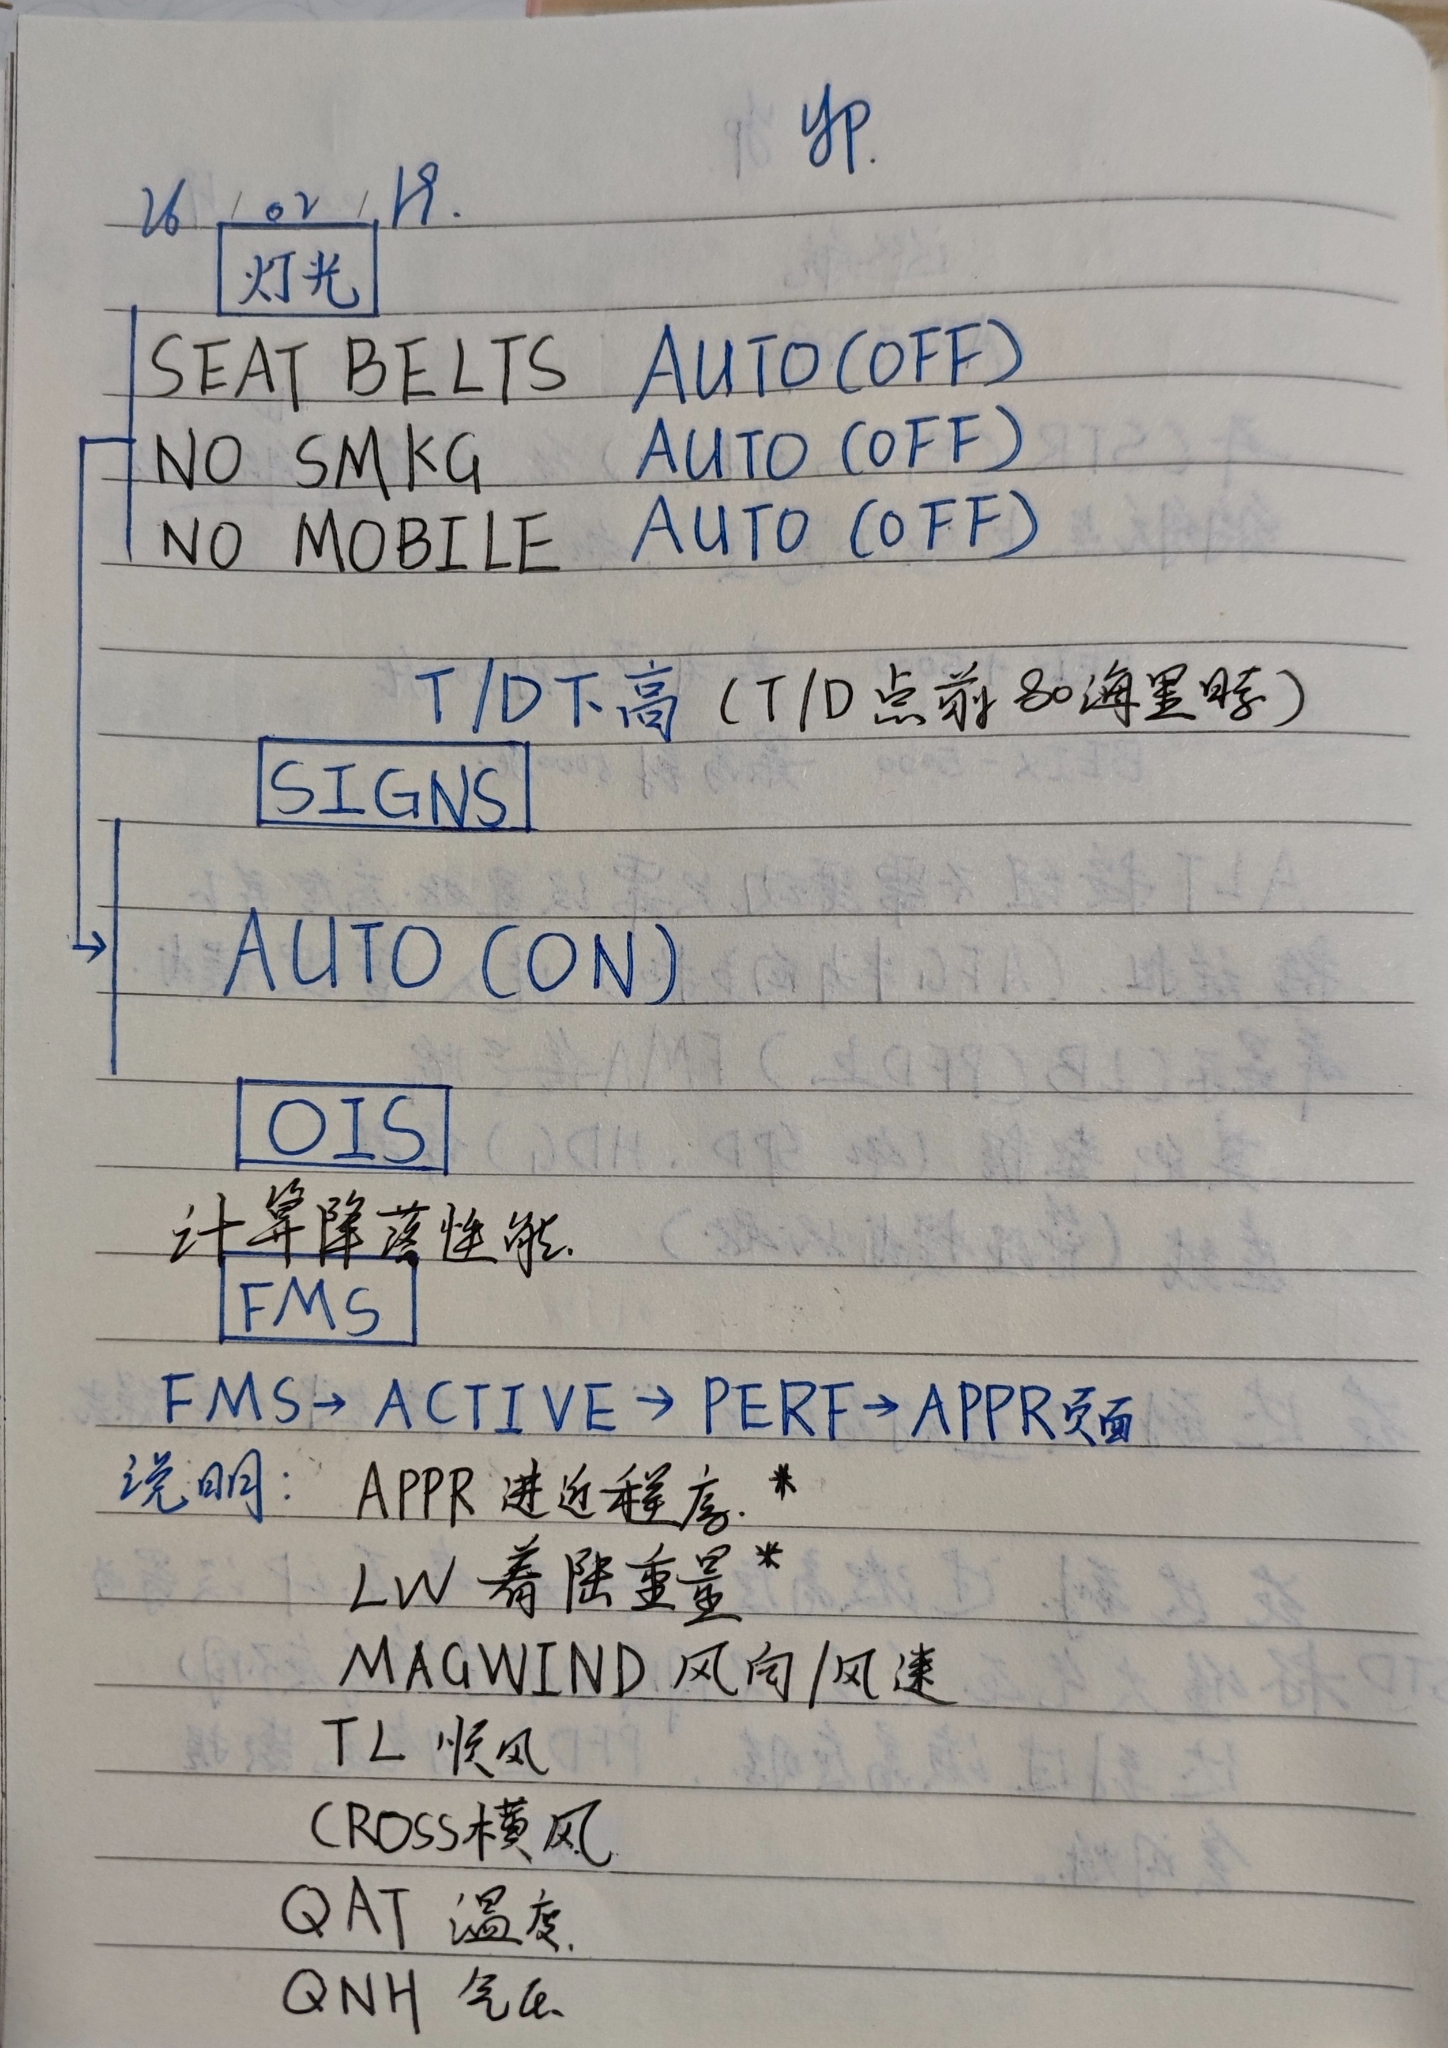 yp.
26/02/19.
灯光
SEAT BELTS AUTO(OFF)
NO SMKG AUTO(OFF)
NO MOBILE AUTO(OFF)
T/D下高(T/D点前80海里时)
SIGNS
AUTO(ON)
OIS
计算降落性能.
FMS
FMS→ACTIVE→PERF→APPR页面
说明: APPR 进近程序.*
LW 着陆重量*
MAGWIND 风向/风速
TL 顺风
CROSS横风
QAT 温度.
QNH 气压